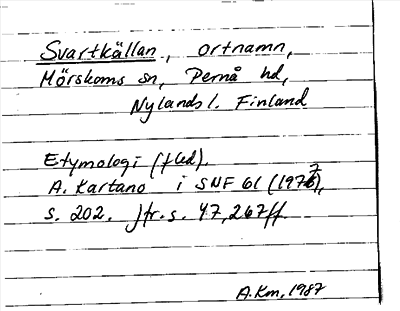 Svartkällan, ortnamn,
Mörskoms sn, Pernå hd,
Nylands l. Finland
Etymologi (fled).
A. Kartano i SNF 61 (1977),
s. 202. Jfr. s. 47, 267ff.
A.Km, 1987